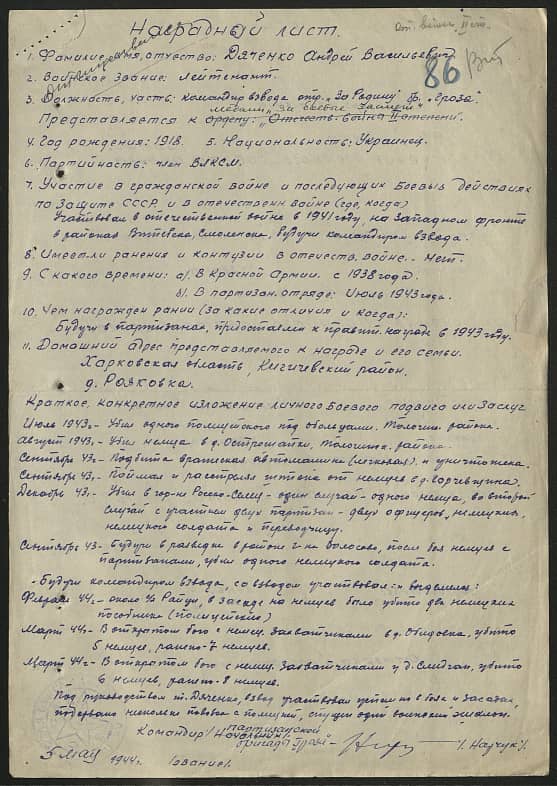 Наградной лист.
86
1. Фамилия, имя, отчество: Дяченко Андрей Васильевич
2. Воинское звание: лейтенант.
3. Должность, часть: командир взвода отр. "За Родину" бр. "Гроза"
медали "За боевые заслуги"
Представляется к ордену: "Отечеств. война II степени".
4. Год рождения: 1918. 5. Национальность: Украинец.
6. Партийность: член ВЛКСМ.
7. Участие в гражданской войне и последующих боевых действиях
по защите СССР и в отечествен. войне (где, когда)
Участвовал в отечественной войне в 1941 году, на западном фронте
в районах Витебска, Смоленска, будучи командиром взвода.
8. Имеет ли ранения и контузии в отечеств. войне. - Нет.
9. С какого времени: а). В Красной Армии. с 1938 года.
б). В партизан. отряде: Июль 1943 года.
10. Чем награжден ранее (за какие отличия и когда):
Будучи в партизанах, представлен к правит. награде в 1943 году.
11. Домашний адрес представляемого к награде и его семьи.
Харковская область, Кигичевский район.
д. Рояковка.
Краткое, конкретное изложение личного боевого подвига или заслуг
Июль 1943г. - Убил одного полицейского под Оболь Толочин. района.
Август 1943г. - Убил немца в д. Острошатки, Толочинск. района.
Сентябрь 43г. - Подбита вражеская автомашина (легковая) и уничтожена.
Сентябрь 43г. - Поймал и расстрелял от немцев в д. Горчевучна.
Декабрь 43г. - Убил в гор-не Россо-Селец - один случай - одного немца, во второй
случай с участием двух партизан - двух офицеров, немецкия,
немецкой солдата и переводчицу.
Сентябрь 43 - Будучи в разведке в районе Волосово, после боя немцев с
партизанами, убил одного немецкого солдата.
- Будучи командиром взвода, со взводом участвовал и выделился:
Февраль 44г. - около в засаде на немцев было убито два немецких
пособника (полицейских)
Март 44г. - В открытом бою с немец. захватчиками в д. Обидовка, убито
5 немцев, ранено 7 немцев.
Март 44г. - В открытом бою с немец. захватчиками у д. Слидчан, убито
6 немцев, ранено 8 немцев.
Под руководством т. Дяченко, взвод участвовал успешно в боях и засадах,
подорвано несколько повозок с полицией, спущен один воинский эшелон.
Командир / Начальник / партизанской
бригады "Гроза"
/. Найчук/.
5 мая 1944г. (звание).